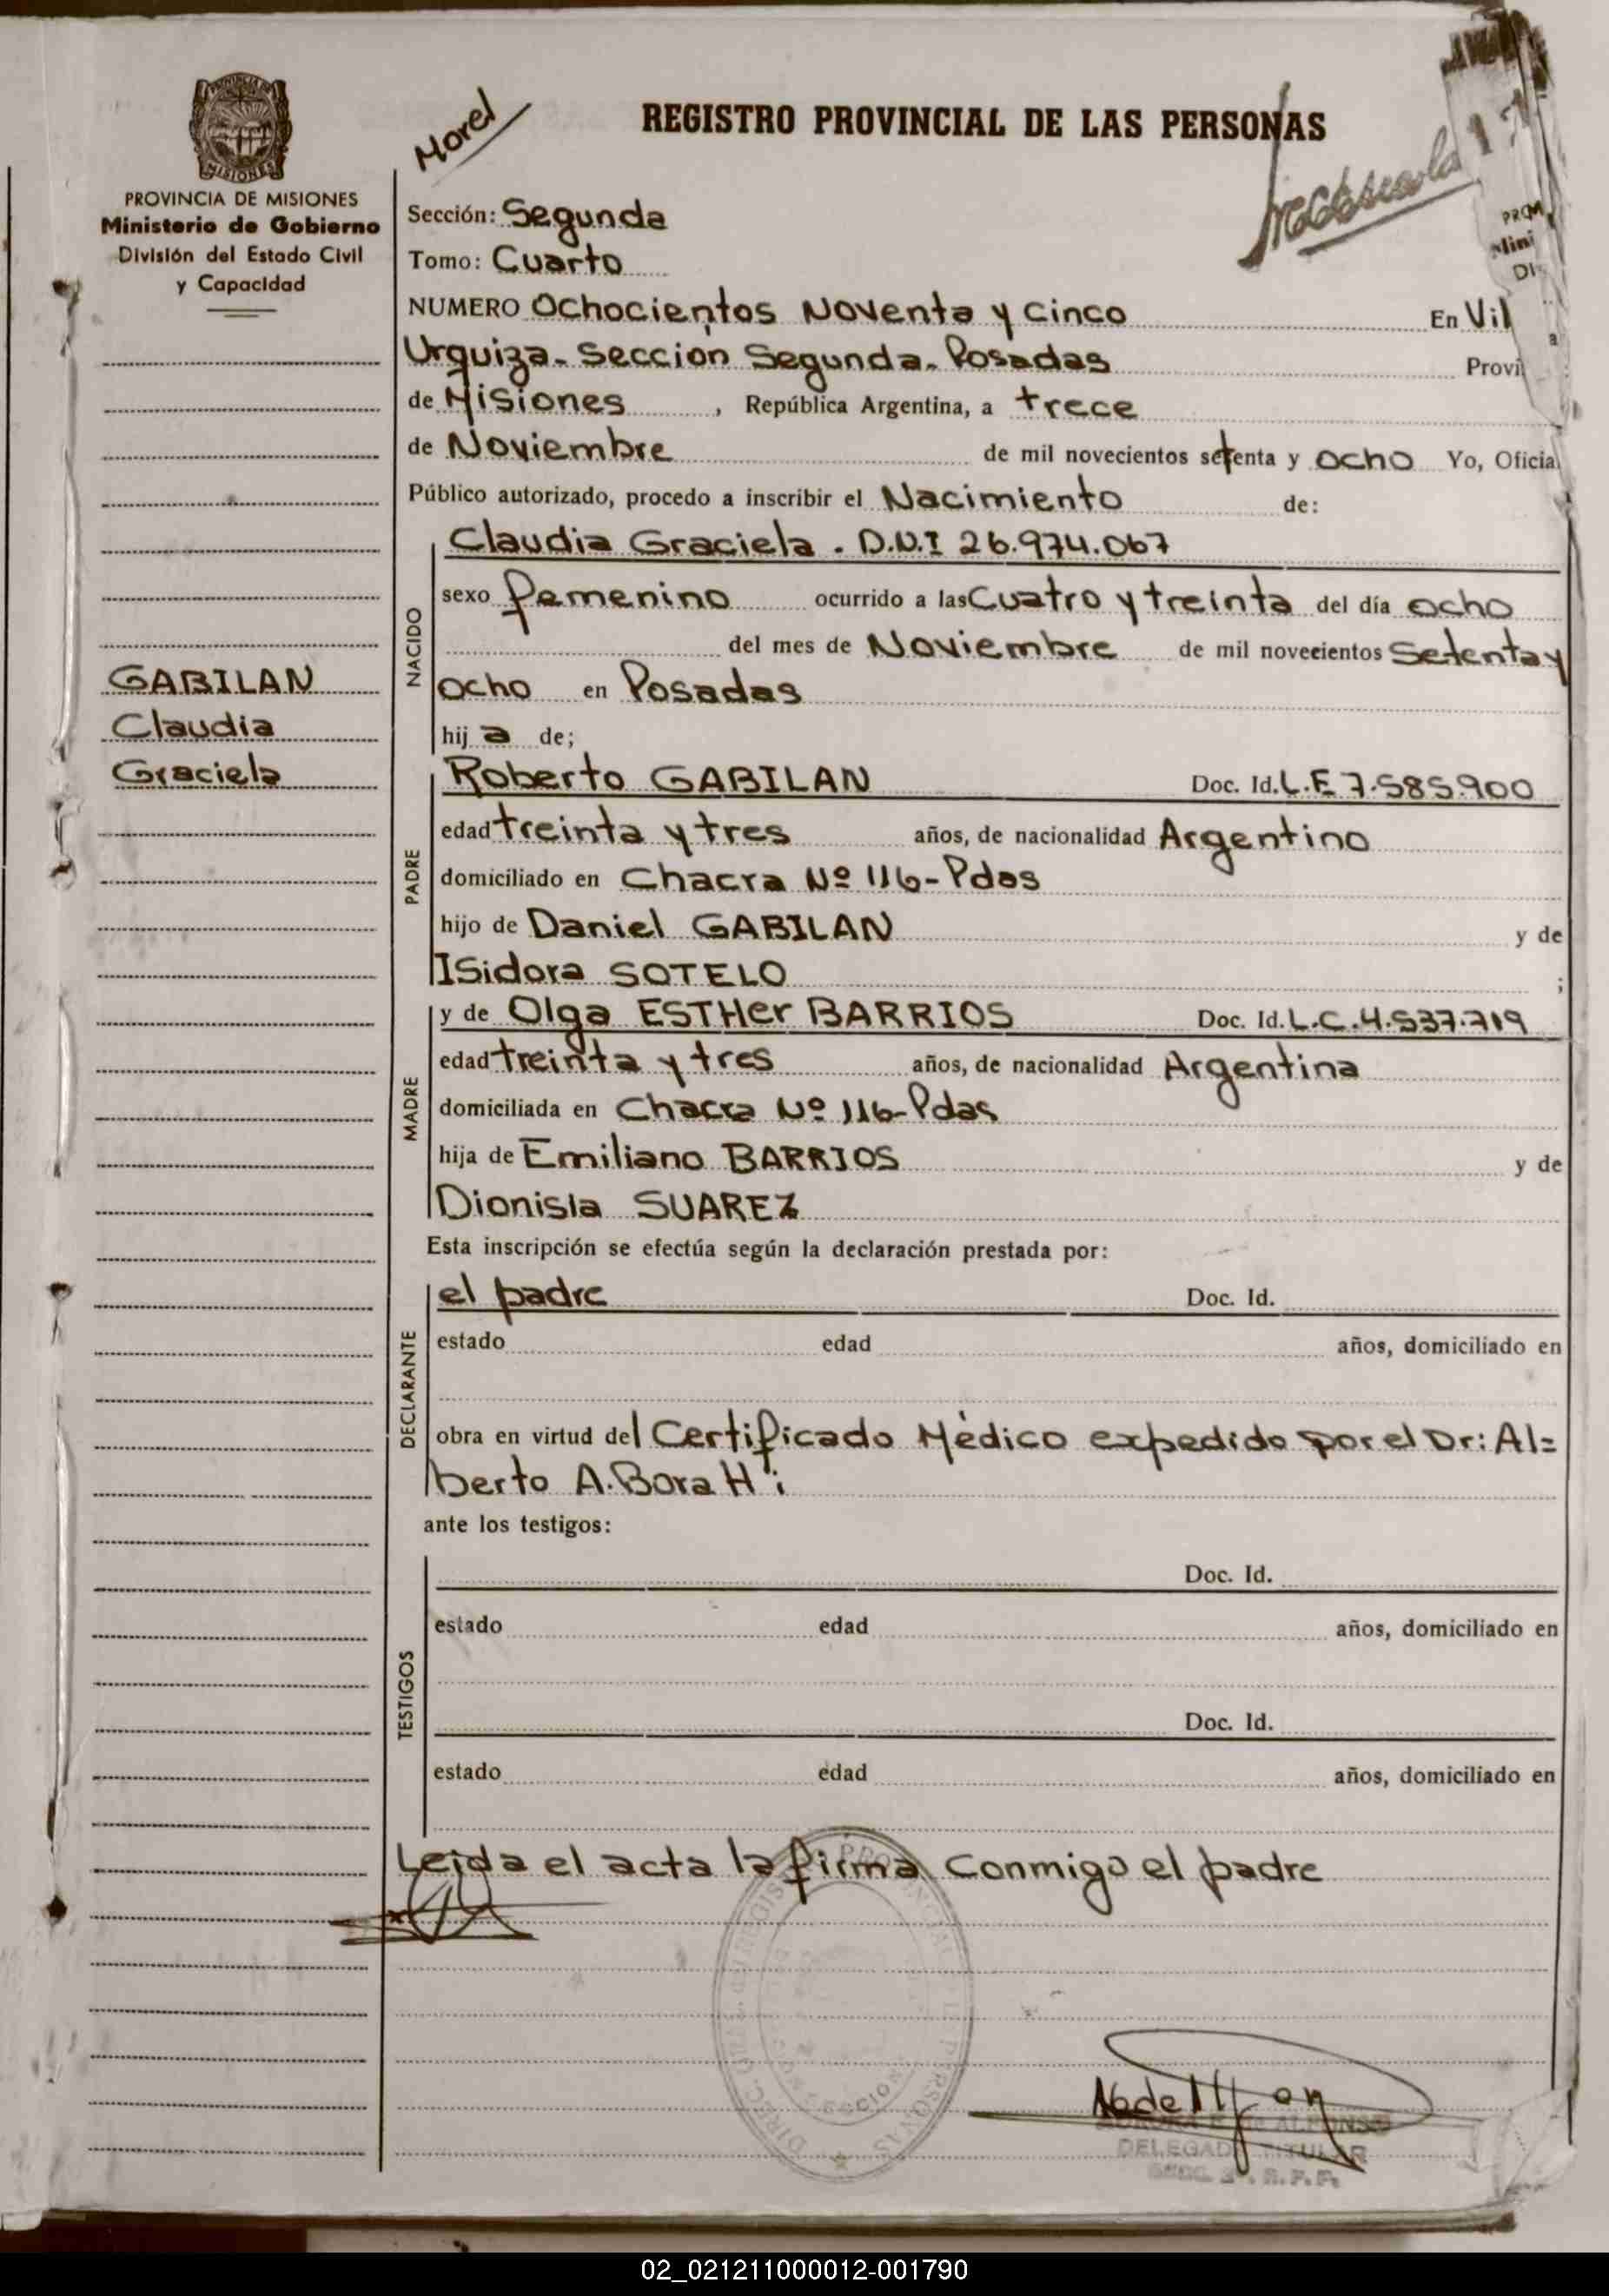 PROVINCIA DE MISIONES
Ministerio de Gobierno
División del Estado Civil
y Capacidad
Morel
REGISTRO PROVINCIAL DE LAS PERSONAS
Sección: Segunda
Tomo: Cuarto
NUMERO Ochocientos Noventa y Cinco En Vil
Urquiza- Sección Segunda- Posadas Provi
de Misiones , República Argentina, a trece
de Noviembre de mil novecientos setenta y ocho Yo, Oficial
Público autorizado, procedo a inscribir el Nacimiento de:
Claudia Graciela . D.N.I 26.974.067
NACIDO
sexo femenino ocurrido a las Cuatro y treinta del día ocho
del mes de Noviembre de mil novecientos Setenta y
ocho en Posadas
hij a de;
GABILAN
Claudia
Graciela
PADRE
Roberto GABILAN Doc. Id. L.E 7.585.900
edad treinta y tres años, de nacionalidad Argentino
domiciliado en Chacra Nº 116-Pdas
hijo de Daniel GABILAN y de
ISidora SOTELO ;
MADRE
y de Olga ESTHer BARRIOS Doc. Id. L.C.4.537.719
edad treinta y tres años, de nacionalidad Argentina
domiciliada en Chacra Nº 116-Pdas
hija de Emiliano BARRIOS y de
Dionisia SUAREZ
Esta inscripción se efectúa según la declaración prestada por:
DECLARANTE
el padre Doc. Id.
estado edad años, domiciliado en
obra en virtud del Certificado Médico expedido por el Dr: Al=
berto A. Boratti
ante los testigos:
TESTIGOS
Doc. Id.
estado edad años, domiciliado en
Doc. Id.
estado edad años, domiciliado en
Leida el acta la firma Conmigo el padre
ALFONSO
DELEGADA TITULAR
02_021211000012-001790